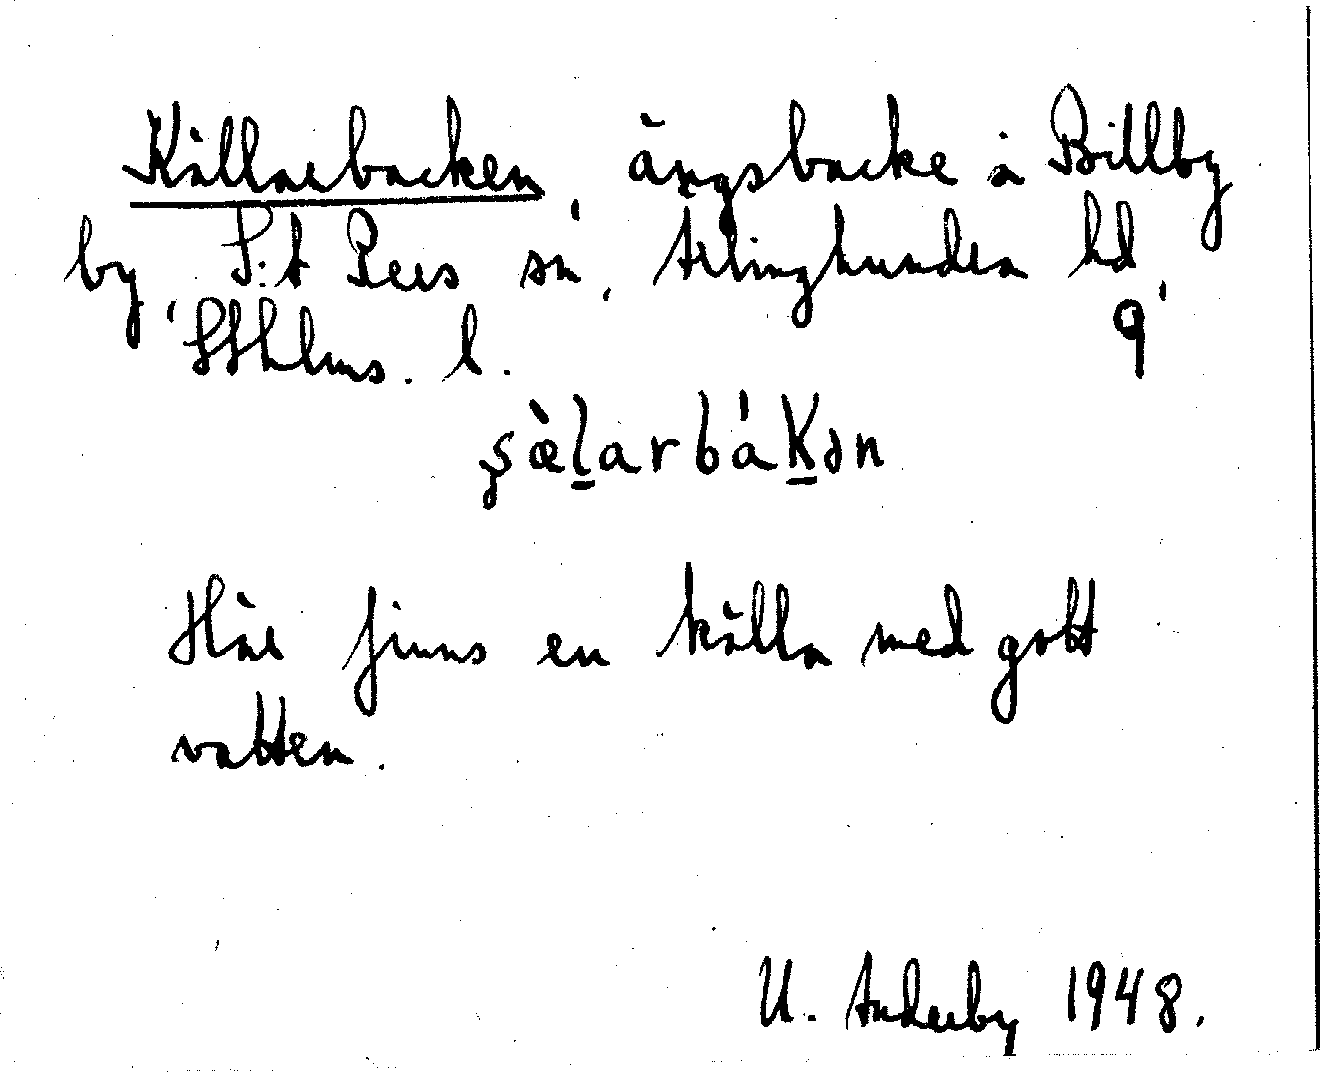 Källarbacken, ängsbacke å Billby
by, S:t Pers sn, Ärlinghundra hd,
Sthlms. l. 9
ʂὰḻarbáḴən
Här finns en källa med gott
vatten.
U. Anderby 1948.